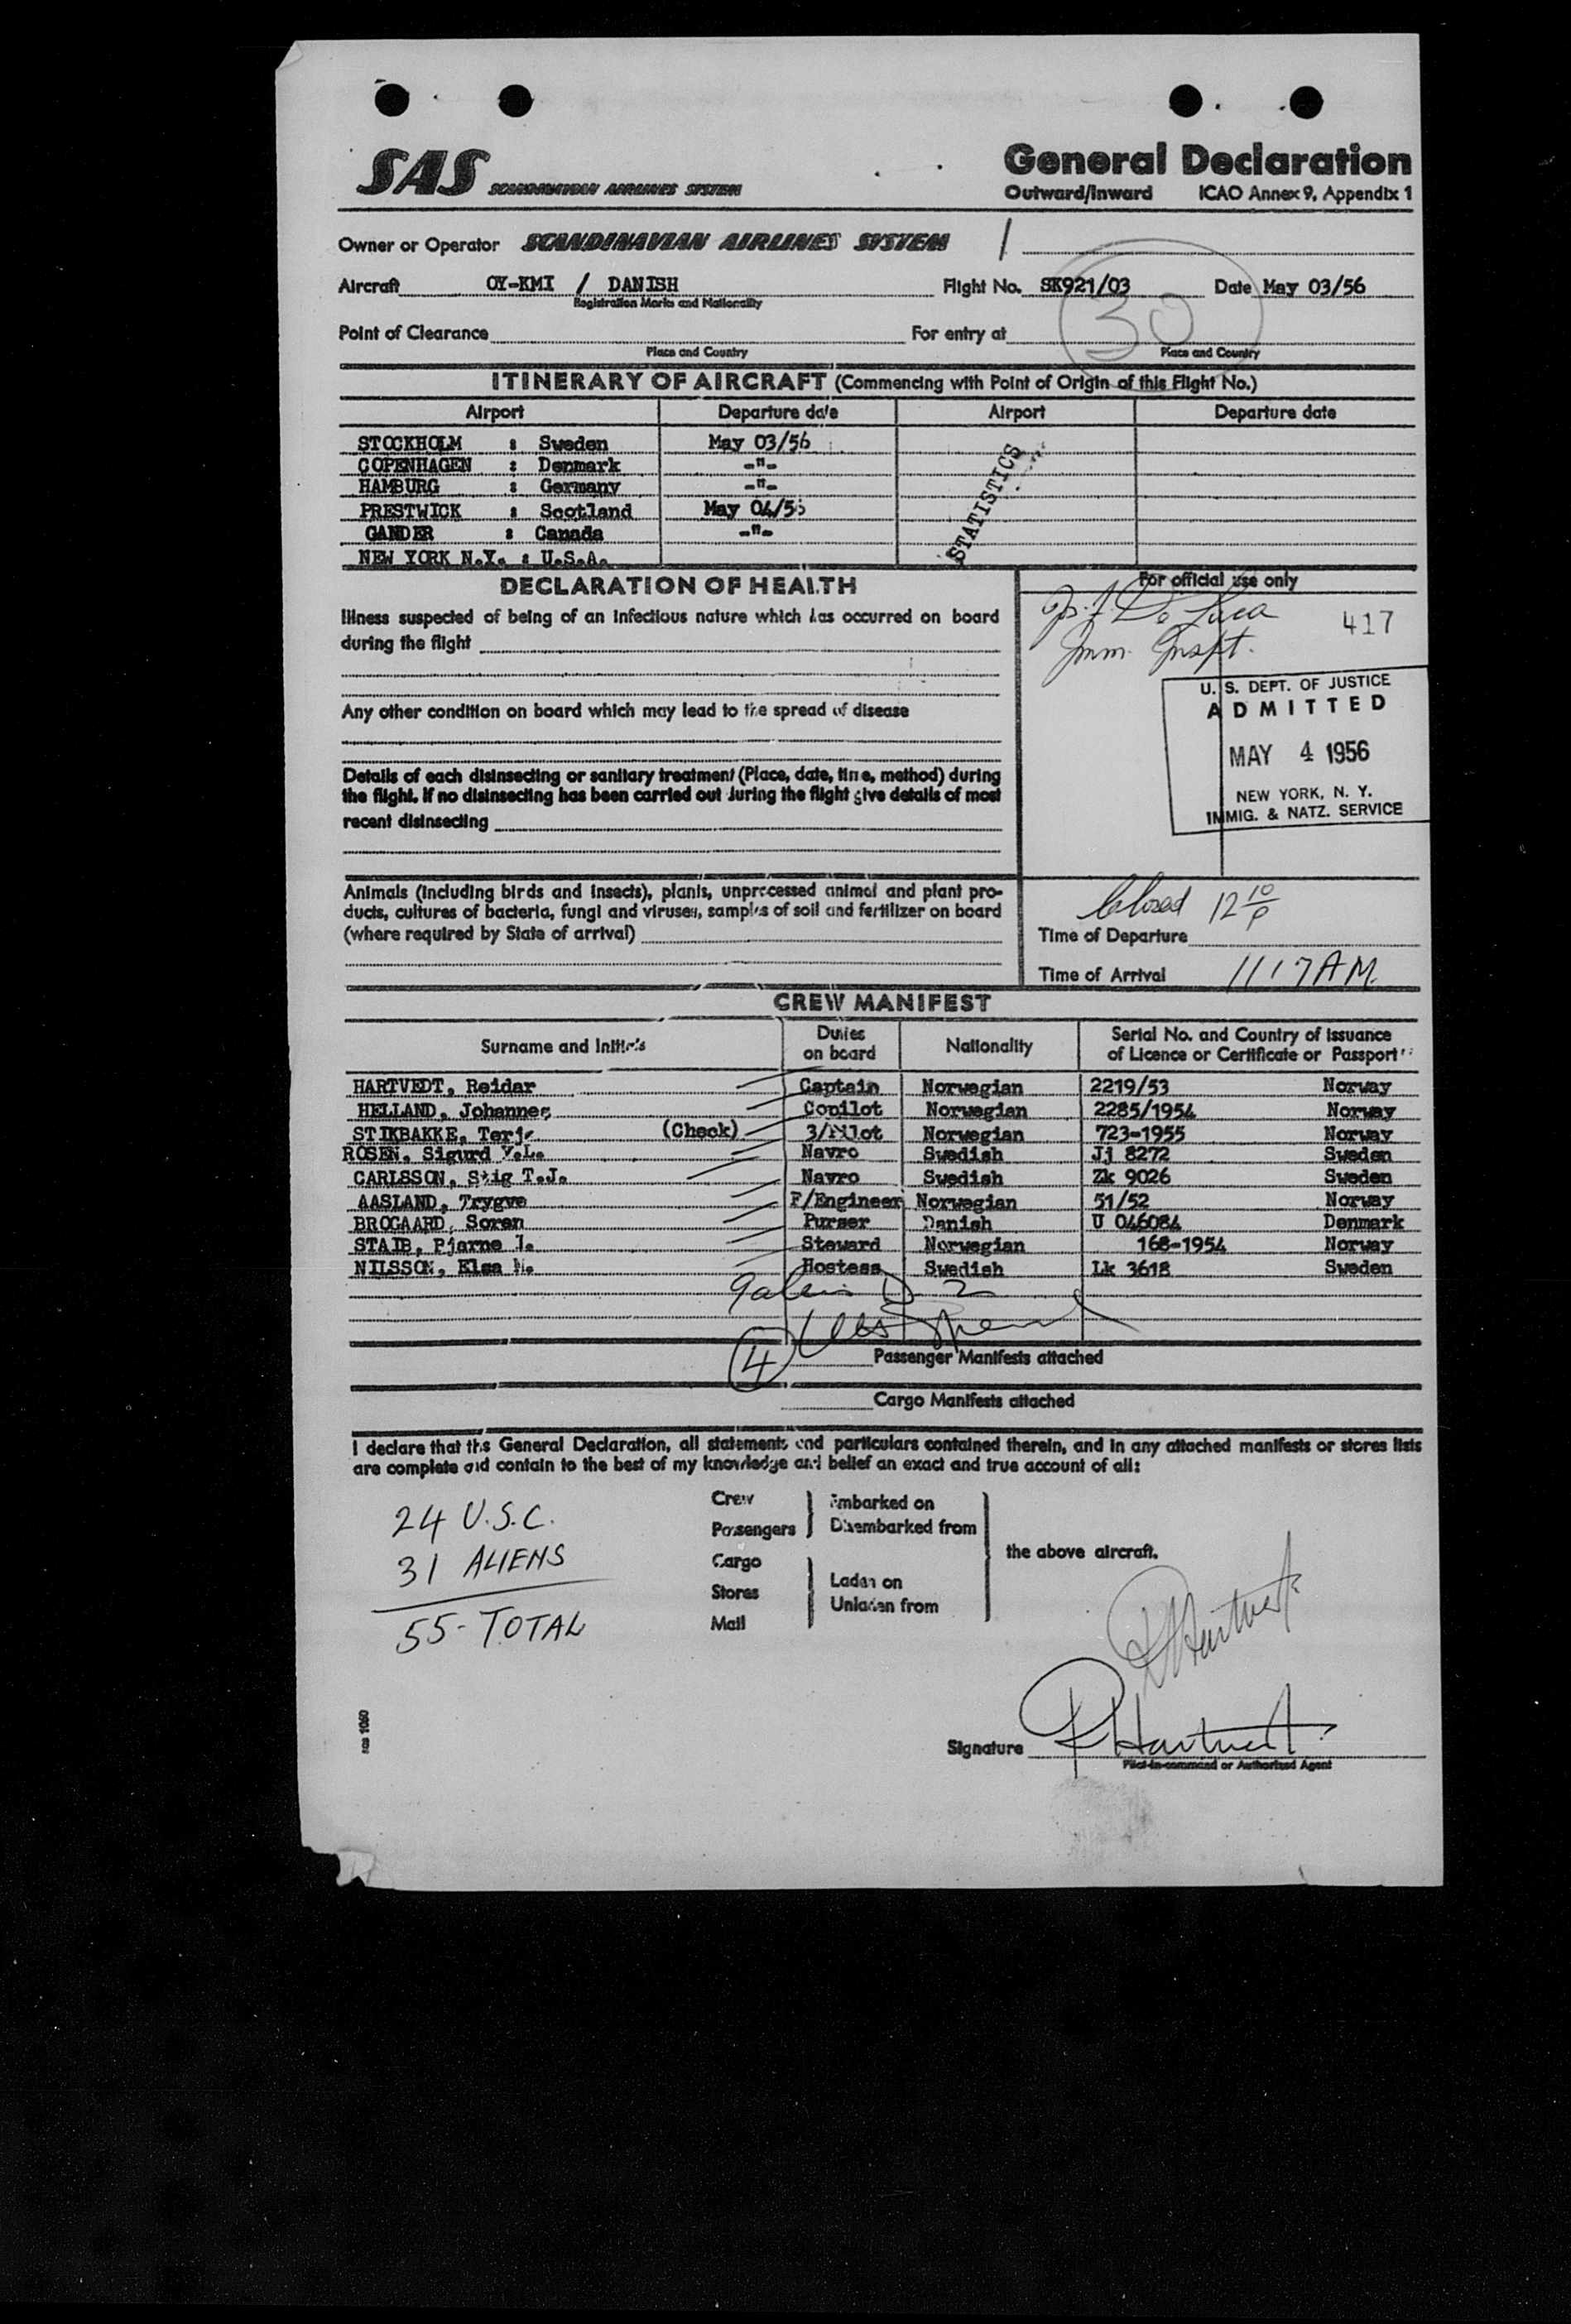 SAS SCANDINAVIAN AIRLINES SYSTEM
General Declaration
Outward/Inward ICAO Annex 9, Appendix 1
Owner or Operator SCANDINAVIAN AIRLINES SYSTEM /
Aircraft OY-KMI / DANISH Flight No. SK921/03 Date May 03/56
Registration Marks and Nationality
30
Point of Clearance For entry at
Place and Country Place and Country
ITINERARY OF AIRCRAFT (Commencing with Point of Origin of this Flight No.)
Airport Departure date Airport Departure date
STOCKHOLM : Sweden May 03/56
COPENHAGEN : Denmark -"-
HAMBURG : Germany -"-
PRESTWICK : Scotland May 04/56
GANDER : Canada -"-
NEW YORK N.Y. : U.S.A.
STATISTICS
DECLARATION OF HEALTH
Illness suspected of being of an infectious nature which has occurred on board
during the flight
Any other condition on board which may lead to the spread of disease
Details of each disinsecting or sanitary treatment (Place, date, time, method) during
the flight. If no disinsecting has been carried out during the flight give details of most
recent disinsecting
Animals (including birds and insects), plants, unprocessed animal and plant pro-
ducts, cultures of bacteria, fungi and viruses, samples of soil and fertilizer on board
(where required by State of arrival)
For official use only
De Luca 417
Imm. Inspt.
U. S. DEPT. OF JUSTICE
ADMITTED
MAY 4 1956
NEW YORK, N. Y.
IMMIG. & NATZ. SERVICE
Closed 12 10/P
Time of Departure
Time of Arrival 11 17 AM
CREW MANIFEST
Surname and Initials Duties on board Nationality Serial No. and Country of issuance of Licence or Certificate or Passport
HARTVEDT, Reidar Captain Norwegian 2219/53 Norway
HELLAND, Johannes Copilot Norwegian 2285/1954 Norway
STIKBAKKE, Terje (Check) 3/Pilot Norwegian 723-1955 Norway
ROSEN, Sigurd V.L. Navro Swedish Jj 8272 Sweden
CARLSSON, Stig T.J. Navro Swedish Zk 9026 Sweden
AASLAND, Trygve F/Engineer Norwegian 51/52 Norway
BROGAARD, Soren Purser Danish U 046084 Denmark
STAIB, Bjarne I. Steward Norwegian 168-1954 Norway
NILSSON, Elsa M. Hostess Swedish Lk 3618 Sweden
4 Passenger Manifests attached
Cargo Manifests attached
I declare that this General Declaration, all statements and particulars contained therein, and in any attached manifests or stores lists
are complete and contain to the best of my knowledge and belief an exact and true account of all:
24 U.S.C.
31 ALIENS
55-TOTAL
Crew Embarked on
Passengers Disembarked from
the above aircraft.
Cargo
Stores Laden on
Mail Unladen from
R Hartvedt
Signature R Hartvedt
Pilot-in-command or Authorized Agent